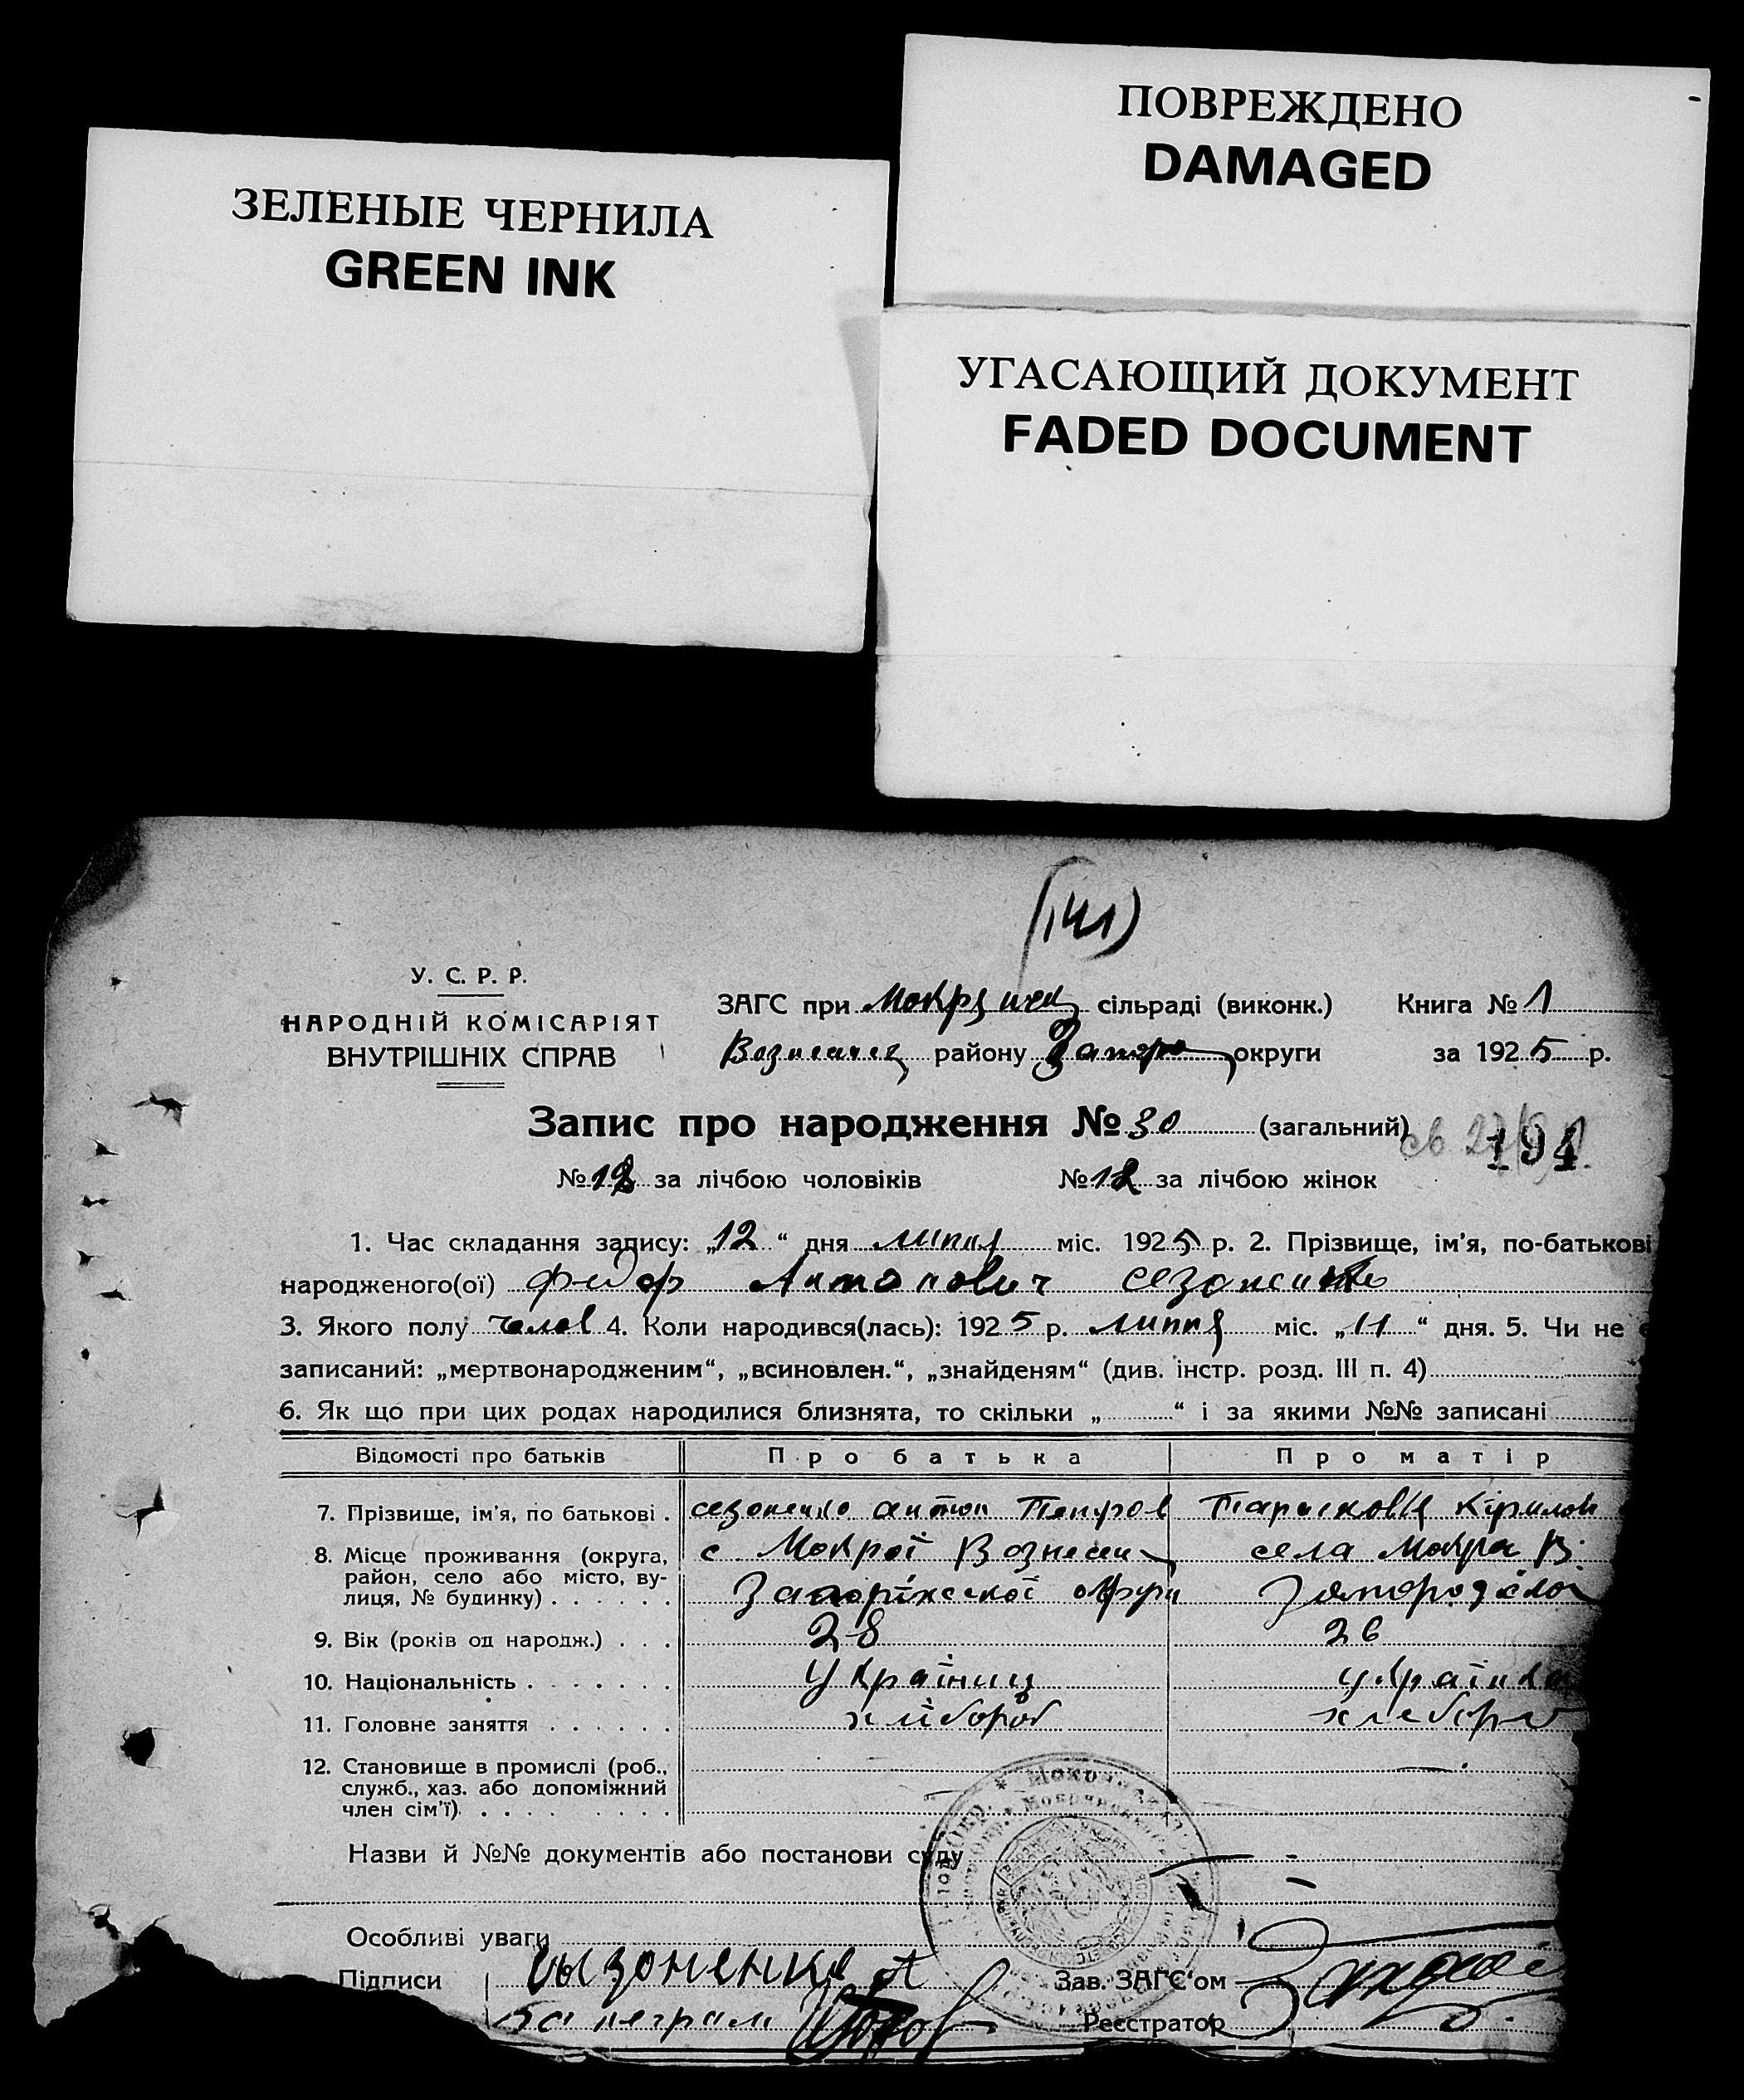 ПОВРЕЖДЕНО
DAMAGED
ЗЕЛЕНЫЕ ЧЕРНИЛА
GREEN INK
УГАСАЮЩИЙ ДОКУМЕНТ
FADED DOCUMENT
(141)
У. С. Р. Р.
НАРОДНІЙ КОМІСАРІЯТ
ВНУТРІШНІХ СПРАВ
ЗАГС при сільраді (виконк.) Книга № 1
району округи за 1925 р.
Запис про народження № 30 (загальний)
191
№ 18 за лічбою чоловіків № 12 за лічбою жінок
1. Час складання запису: „12“ дня липня міс. 1925 р. 2. Прізвище, ім'я, по-батькові
народженого(ої) Федор Антонович Сезоненко
3. Якого полу челов 4. Коли народився(лась): 1925 р. липня міс. „11“ дня. 5. Чи не є
записаний: „мертвонародженим“, „всиновлен.“, „знайденям“ (див. інстр. розд. III п. 4)
6. Як що при цих родах народилися близнята, то скільки „ “ і за якими №№ записані
Відомості про батьків Про батька Про матір
7. Прізвище, ім'я, по батькові . сезоненко антон Петров Кірилов
8. Місце проживання (округа, с Мокрої Вознесен села Мокра В.
район, село або місто, ву-
лиця, № будинку) . . . . . . Запоріжської округи
9. Вік (років од народж.) . . . 28 26
10. Національність . . . . . . . Українец українка
11. Головне заняття . . . . . . хлібороб хлебороб
12. Становище в промислі (роб.,
служб., хаз. або допоміжний
член сім'ї) . . . . . . . . .
Назви й №№ документів або постанови суду
Особливі уваги
Підписи Сызоненко А Зав. ЗАГС'ом
за неграм Реєстратор